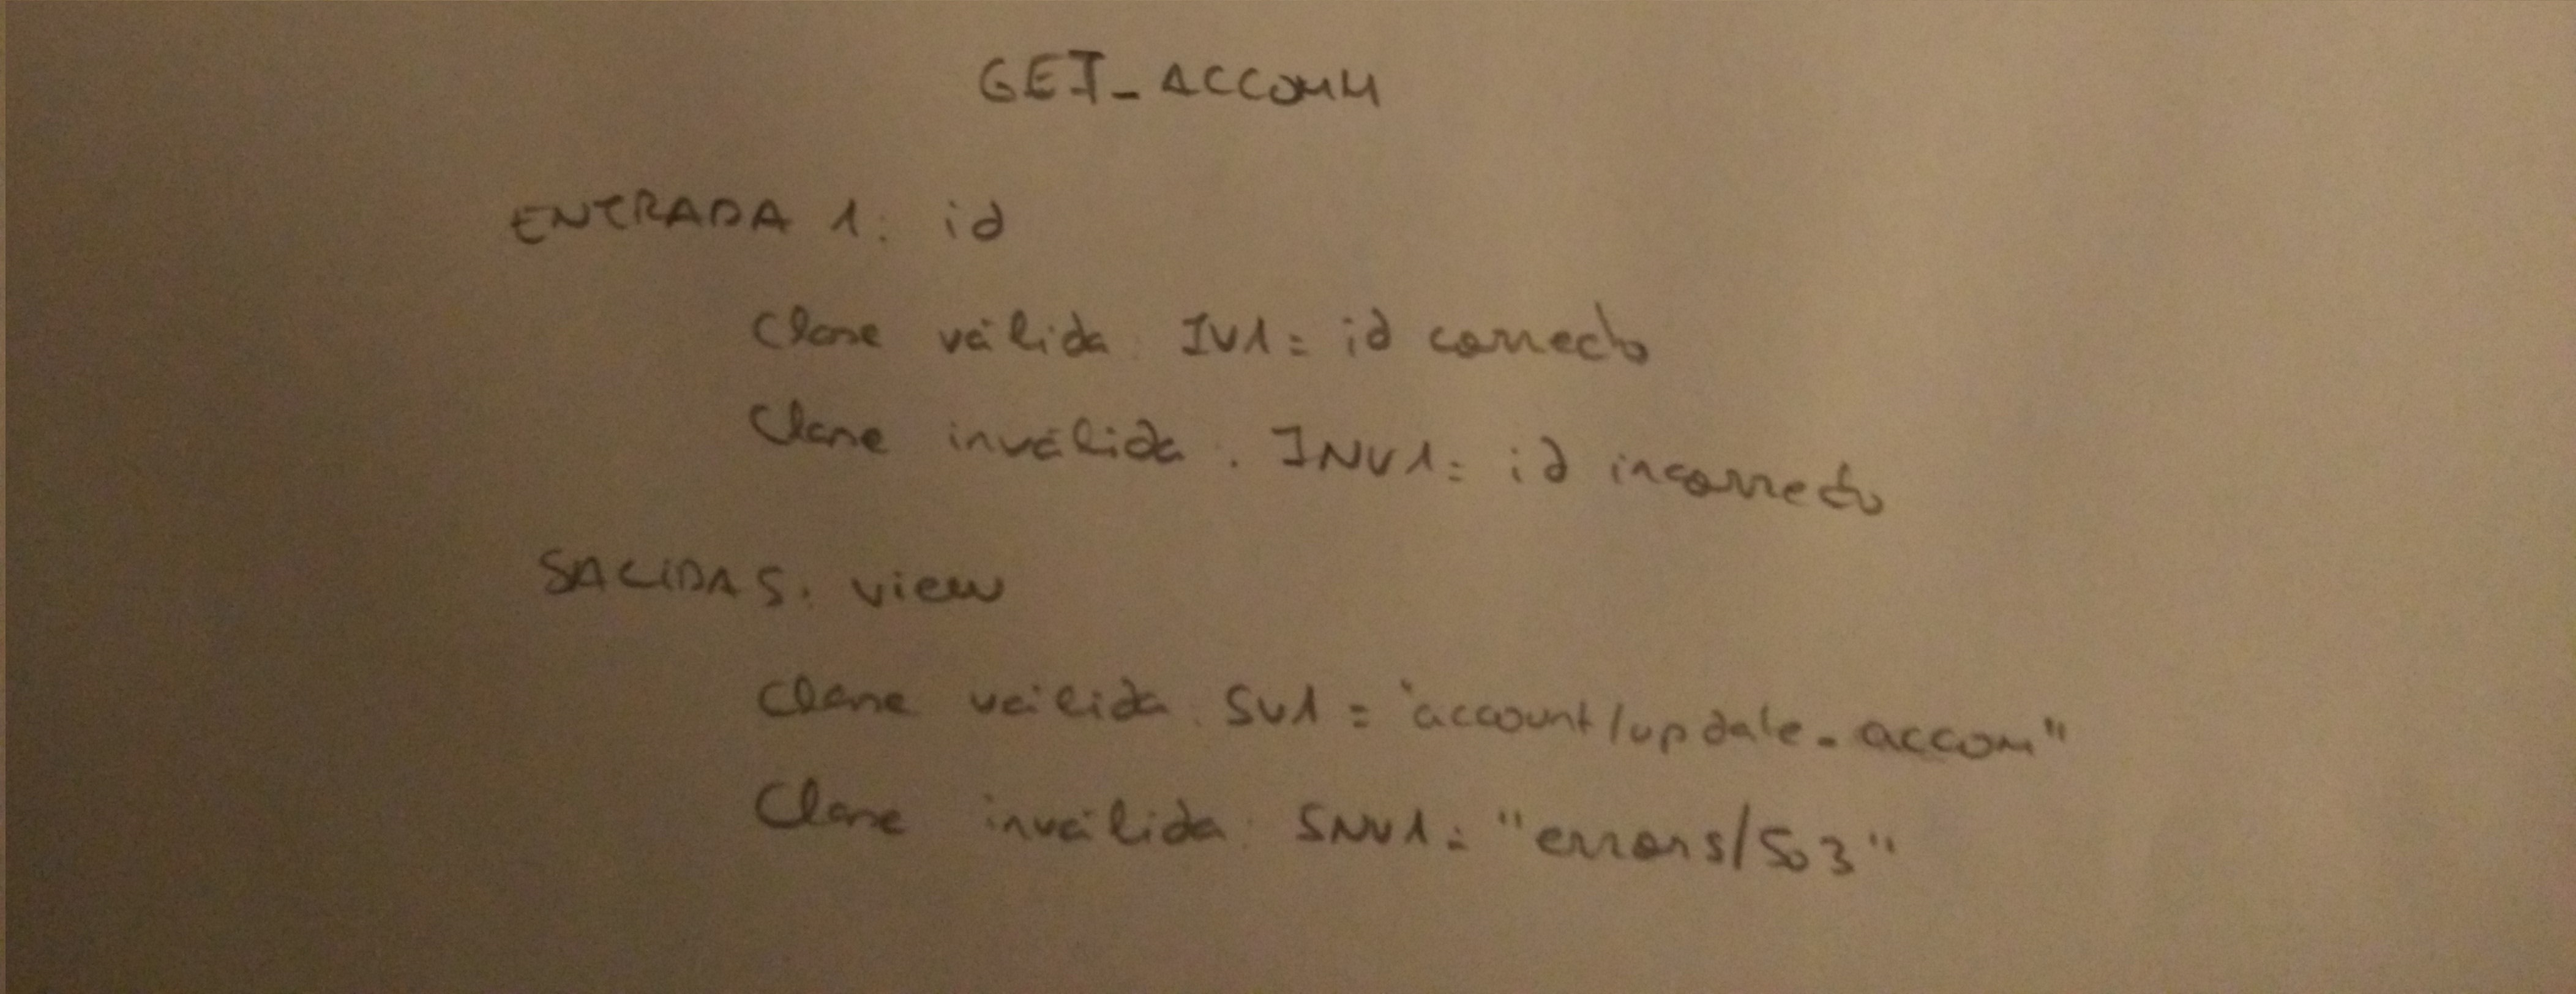 GET_ACCOMM
ENTRADA 1: id
Clase válida: IV1= id correcto
Clase inválida: INV1= id incorrecto
SALIDAS: view
Clase válida: SV1= "account/update_accom"
Clase inválida: SNV1= "errors/503"